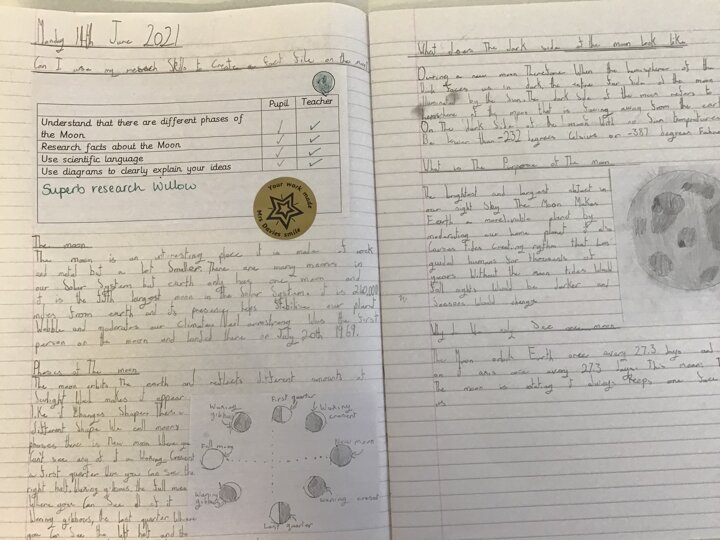 Monday 14th June 2021
Can I use my research skills to create a fact file on the moon
Pupil Teacher
Understand that there are different phases of
the Moon
Research facts about the Moon
Use scientific language
Use diagrams to clearly explain your ideas
Superb research Willow
Your work made
Mrs. Davies smile
The moon
The moon is an intresting place it is made of rock
and metal but a lot smaller. There are many moons in
our Solar System but earth only has one moon and
it is the 5th largest moon in the solar system. it is 240,000
miles from earth and its presence helps stabilise our planet
wobble and moderates our climate. Neil armstrong was the first
person on the moon and landed there on July 20th 1969.
Phases of The moon
The moon orbits the earth and reflects different amounts of
Sunlight that makes it appear
like it changes shape. There
different shape we call moons
phases there is New moon where you
Can't see any of it a Waxing Crescent
a first quarter then you can see the
right half, Waxing gibbous, the full moon
Where you can see all of it
Waning gibbous, the last quarter Where
you can see the left half and the
First quarter
Waxing gibbous
Waxing cresent
Full moon
New moon
Waning gibbous
waning cresent
Last quarter
What does The dark side of the moon look like
During a new moon Therefore When the hemisphere of the
that faces us in dark, the entire far side of the moon
illuminated by the sun. The dark side of the moon refers to
hemisphere of the moon that is facing away from the earth
On the dark side of the month With no Sun temperatures
be lower than -232 degrees Celsius or -387 degrees Fahren
What is The Purpose of The moon
The brightest and largest object in
our night sky. The Moon Makes
Earth a more livable planet by
moderating our home planet it also
Causes tides Creating rythm that has
guided humans for thousands of
years. Without the moon tides Would
fall nights Would be darker and
Seasons Would change
Why do We only See one moon
The Moon orbits Earth once every 27.3 days and
on its axis once every 27.3 days. This means
the moon is rotating it always keeps one face
us